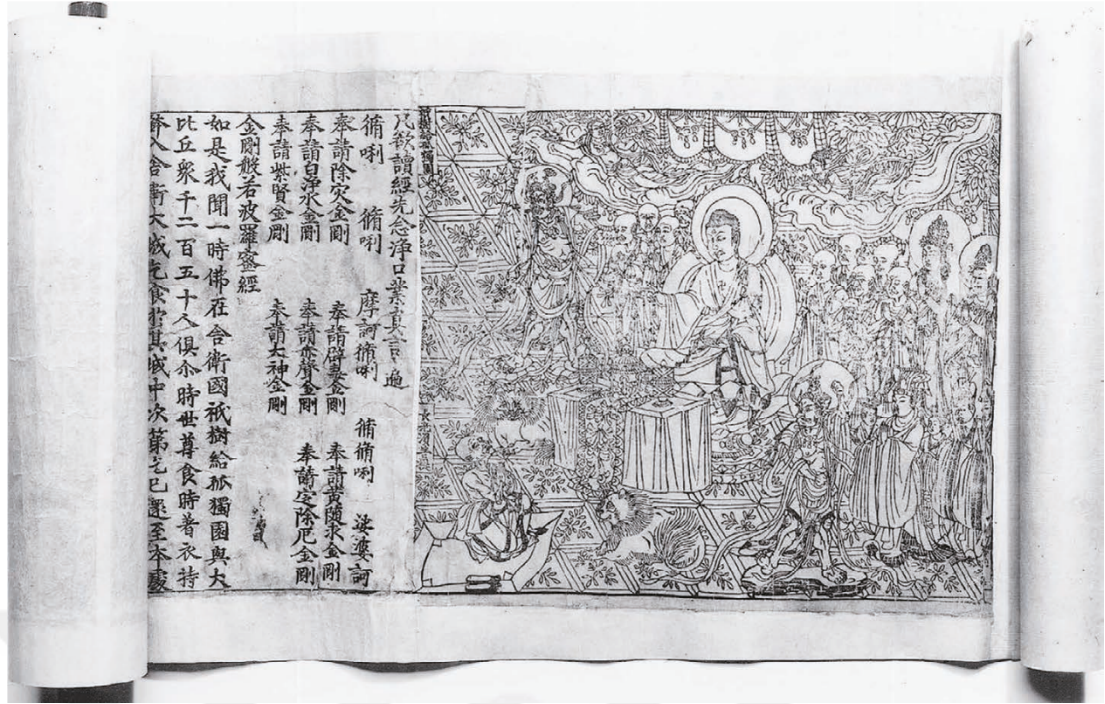 祇樹給孤獨園
長老須菩提
凡欲讀經先念淨口業真言一遍
脩唎 脩唎 摩訶脩唎 脩脩唎 娑婆訶
奉請除灾金剛 奉請辟毒金剛 奉請黃隨求金剛
奉請白淨水金剛 奉請赤聲金剛 奉請定除厄金剛
奉請紫賢金剛 奉請大神金剛
金剛般若波羅蜜經
如是我聞一時佛在舍衛國祇樹給孤獨園與大
比丘衆千二百五十人俱尒時世尊食時著衣持
鉢入舍衛大城乞食於其城中次第乞已還至本處